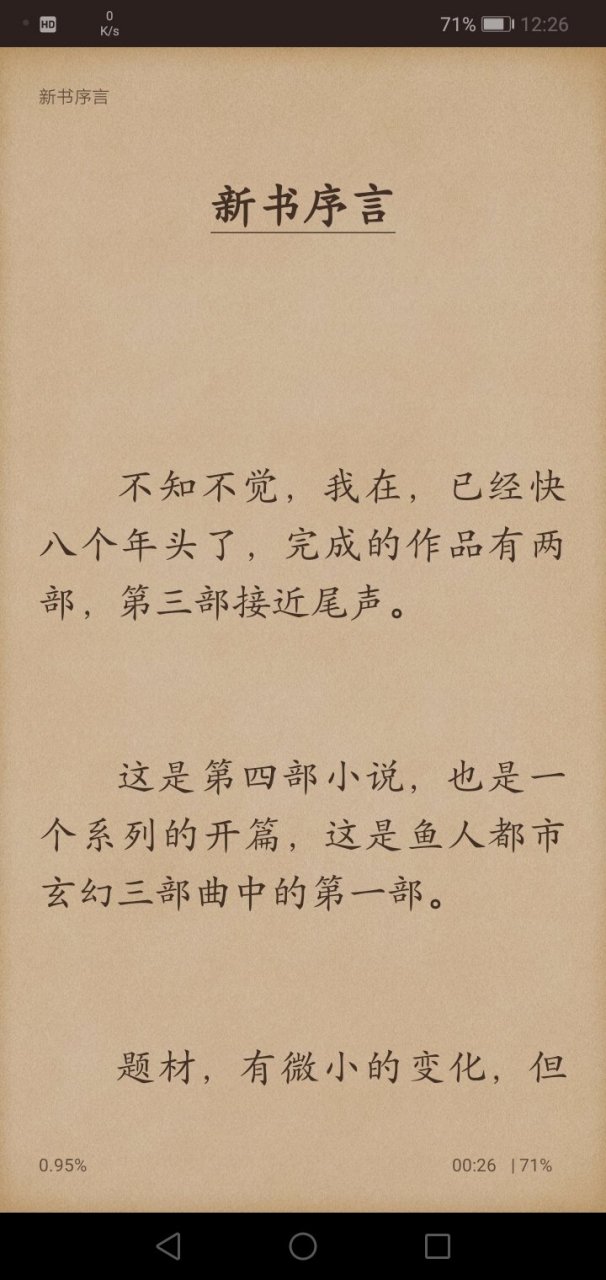 HD
0
K/s
71% 12:26
新书序言
新书序言
不知不觉，我在，已经快
八个年头了，完成的作品有两
部，第三部接近尾声。
这是第四部小说，也是一
个系列的开篇，这是鱼人都市
玄幻三部曲中的第一部。
题材，有微小的变化，但
0.95%
00:26 | 71%